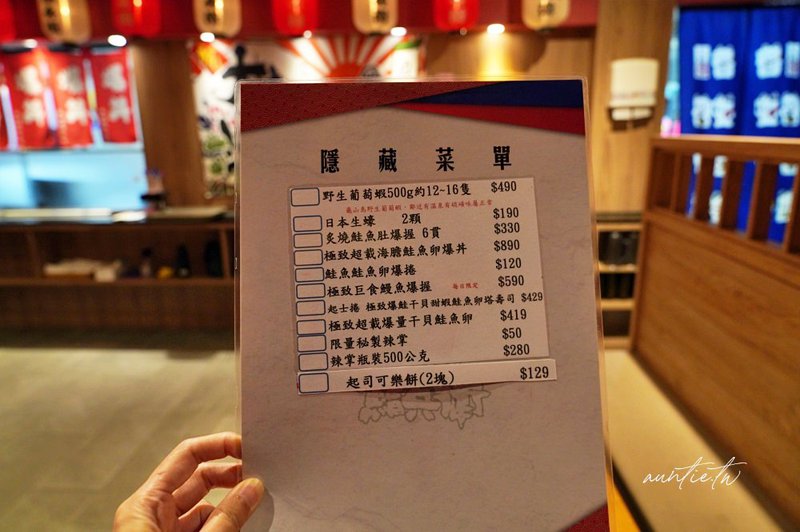 隱藏菜單
野生葡萄蝦500g約12~16隻 $490
龜山島野生葡萄蝦，鄰近有溫泉有硫磺味屬正常
日本生蠔 2顆 $190
炙燒鮭魚肚爆握 6貫 $330
極致超載海膽鮭魚卵爆丼 $890
鮭魚鮭魚卵爆捲 $120
極致巨食鰻魚爆握 每日限定 $590
起士捲 極致爆鮭干貝甜蝦鮭魚卵塔壽司 $429
極致超載爆量干貝鮭魚卵 $419
限量秘製辣掌 $50
辣掌瓶裝500公克 $280
起司可樂餅(2塊) $129
auntie.tw